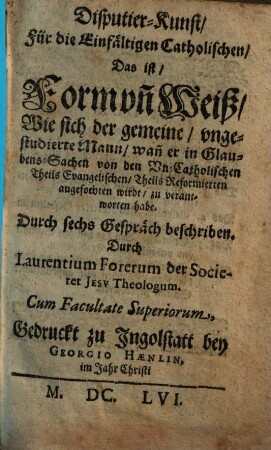 Disputier-Kunst/
Für die Einfältigen Catholischen/
Das ist/
Form vñ Weiß/
Wie sich der gemeine/ vnge-
studierte Mann/ wañ er in Glau-
bens-Sachen von den Vn-Catholischen
Theils Evangelischen/ Theils Reformierten
angefochten wirdt/ zu verant-
worten habe.
Durch sechs Gespräch beschriben.
Durch
Laurentium Forerum der Socie-
tet JESV Theologum.
Cum Facultate Superiorum,
Gedruckt zu Ingolstatt bey
GEORGIO HÆNLIN,
im Jahr Christi
M. DC. LVI.